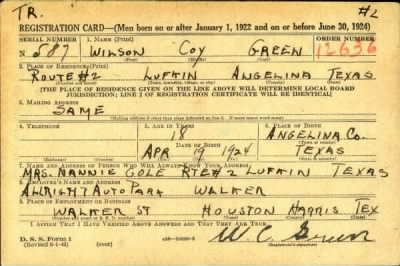 TR. #2
REGISTRATION CARD—(Men born on or after January 1, 1922 and on or before June 30, 1924)
SERIAL NUMBER 1. NAME (Print) ORDER NUMBER
N 587 WILSON COY GREEN 12636
(First) (Middle) (Last)
2. PLACE OF RESIDENCE (Print)
ROUTE #2 LUFKIN ANGELINA TEXAS
(Number and street) (Town, township, village, or city) (County) (State)
[THE PLACE OF RESIDENCE GIVEN ON THE LINE ABOVE WILL DETERMINE LOCAL BOARD
JURISDICTION; LINE 2 OF REGISTRATION CERTIFICATE WILL BE IDENTICAL]
3. MAILING ADDRESS
SAME
[Mailing address if other than place indicated on line 2. If same insert word same]
4. TELEPHONE 5. AGE IN YEARS 6. PLACE OF BIRTH
18 ANGELINA CO.
DATE OF BIRTH (Town or county)
APR 19 1924 TEXAS
(Mo.) (Day) (Yr.) (State or country)
7. NAME AND ADDRESS OF PERSON WHO WILL ALWAYS KNOW YOUR ADDRESS
MRS. NANNIE COLE RTE #2 LUFKIN TEXAS
8. EMPLOYER'S NAME AND ADDRESS
ALRIGHT AUTO PARK WALKER
9. PLACE OF EMPLOYMENT OR BUSINESS
WALKER ST HOUSTON HARRIS TEX
(Number and street or R. F. D. number) (Town) (County) (State)
I AFFIRM THAT I HAVE VERIFIED ABOVE ANSWERS AND THAT THEY ARE TRUE.
D. S. S. Form 1 W. C. Green
(Registrant's signature)